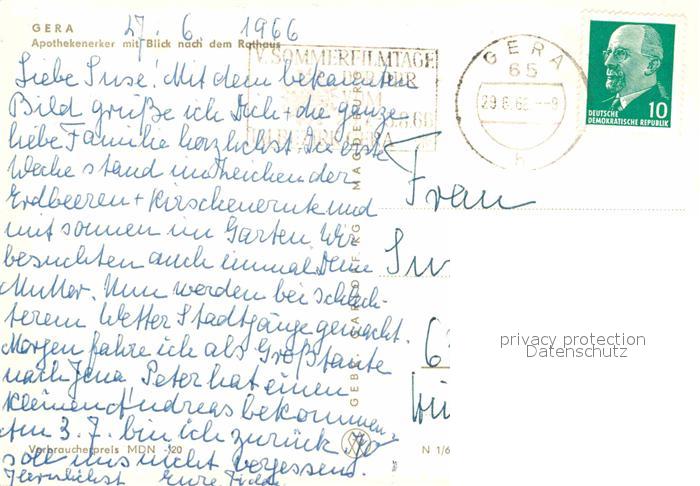 27. 6. 1966
GERA
Apothekenerker mit Blick nach dem Rathaus
Liebe Suse! Mit dem bekannten
Bild grüße ich Dich + die ganze
liebe Familie herzlichst. Die erste
Woche stand im Zeichen der
Erdbeeren + Kirschenernte und
mit sonnen im Garten. Wir
besuchten auch einmal Deine
Mutter. Nun werden bei schlech-
terem Wetter Stadtgänge gemacht.
Morgen fahre ich als Großtante
nach Jena. Peter hat einen
kleinen Andreas bekommen.
Am 3. 7. bin ich zurück.
soll uns nicht vergessen.
Herzlichst Eure
Verbraucherpreis MDN -,20
V. SOMMERFILMTAGE
DER DDR
GERA
65
29.6.66 - 9
h
DEUTSCHE
DEMOKRATISCHE REPUBLIK
10
GEBR. GARLOFF KG MAGDEBURG
Frau
N 1/6
privacy protection
Datenschutz